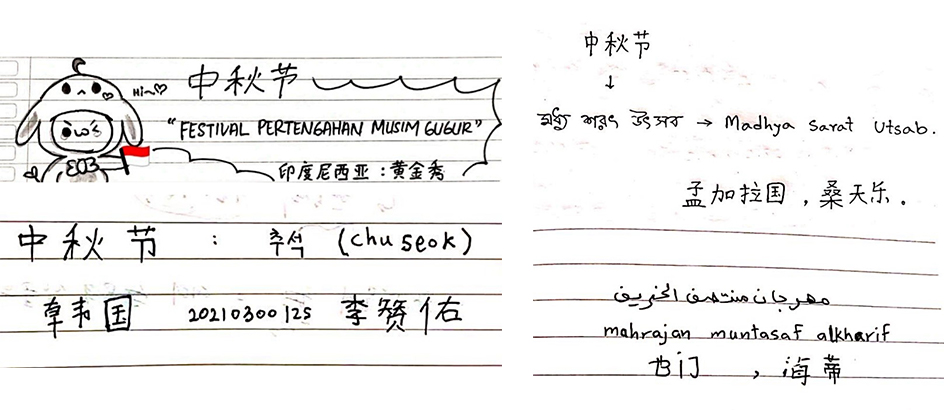 Hi~♡
中秋节
"FESTIVAL PERTENGAHAN MUSIM GUGUR"
E03
印度尼西亚：黄金秀
中秋节 : 추석 (chuseok)
韩国 20210300125 李赞佑
中秋节
↓
মধ্য শরৎ উৎসব → Madhya Sarat Utsab.
孟加拉国，桑天乐.
مهرجان منتصف الخريف
mahrajan muntasaf alkharif
也门，海蒂